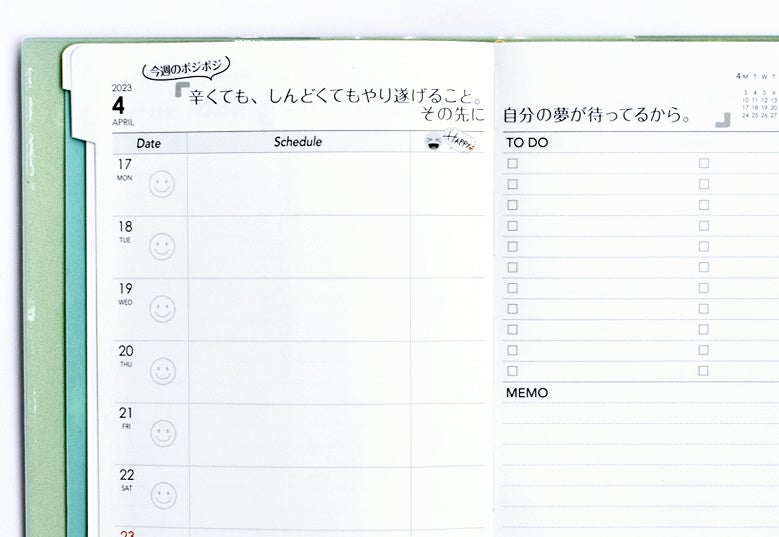 今週のポジポジ
2023
4
APRIL
辛くても、しんどくてもやり遂げること。
その先に
自分の夢が待ってるから。
4 M T W T
3 4 5 6
10 11 12 13
17 18 19 20
24 25 26 27
Date Schedule Happy
TO DO
17
MON
18
TUE
19
WED
20
THU
21
FRI
22
SAT
23
MEMO